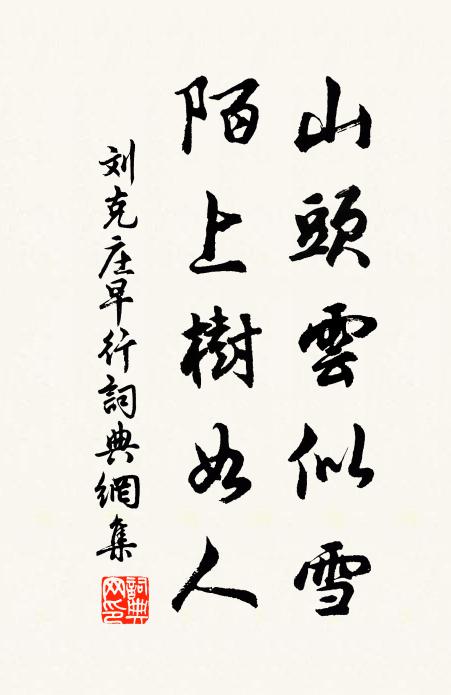 山頭雲似雪
陌上樹如人
刘克庄早行詞典網集
詞典網印